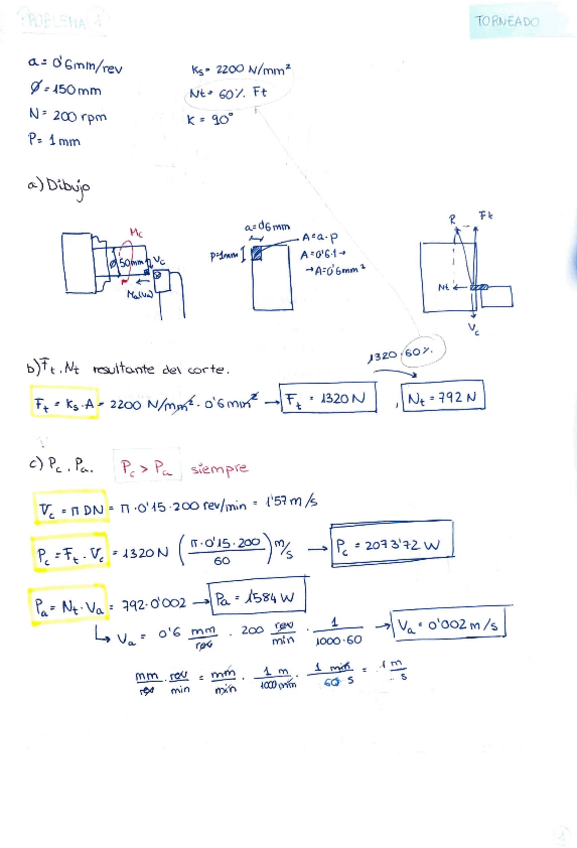 PROBLEMA 1
TORNEADO
a = 0'6mm/rev
Ks = 2200 N/mm²
Ø = 150mm
Nt = 60% Ft
N = 200 rpm
K = 90°
P = 1mm
a) Dibujo
Mc
Ø'50mm
Vc
Na(Va)
a = 0'6mm
p=1mm
A = a·p
A = 0'6·1 →
→ A = 0'6mm²
R
Ft
Nt
Vc
1320·60%
b) Ft, Nt resultante del corte.
Ft = Ks·A = 2200 N/mm² · 0'6mm² → Ft = 1320N , Nt = 792 N
c) Pc, Pa. Pc > Pa siempre
Vc = π D N = π·0'15·200 rev/min = 1'57 m/s
Pc = Ft · Vc = 1320N (π·0'15·200 / 60) m/s → Pc = 2073'72 W
Pa = Nt · Va = 792·0'002 → Pa = 1'584 W
↳ Va = 0'6 mm/rev · 200 rev/min · 1/1000·60 → Va = 0'002 m/s
mm/rev · rev/min = mm/min · 1 m/1000 mm · 1 min/60 s = 1 m/s